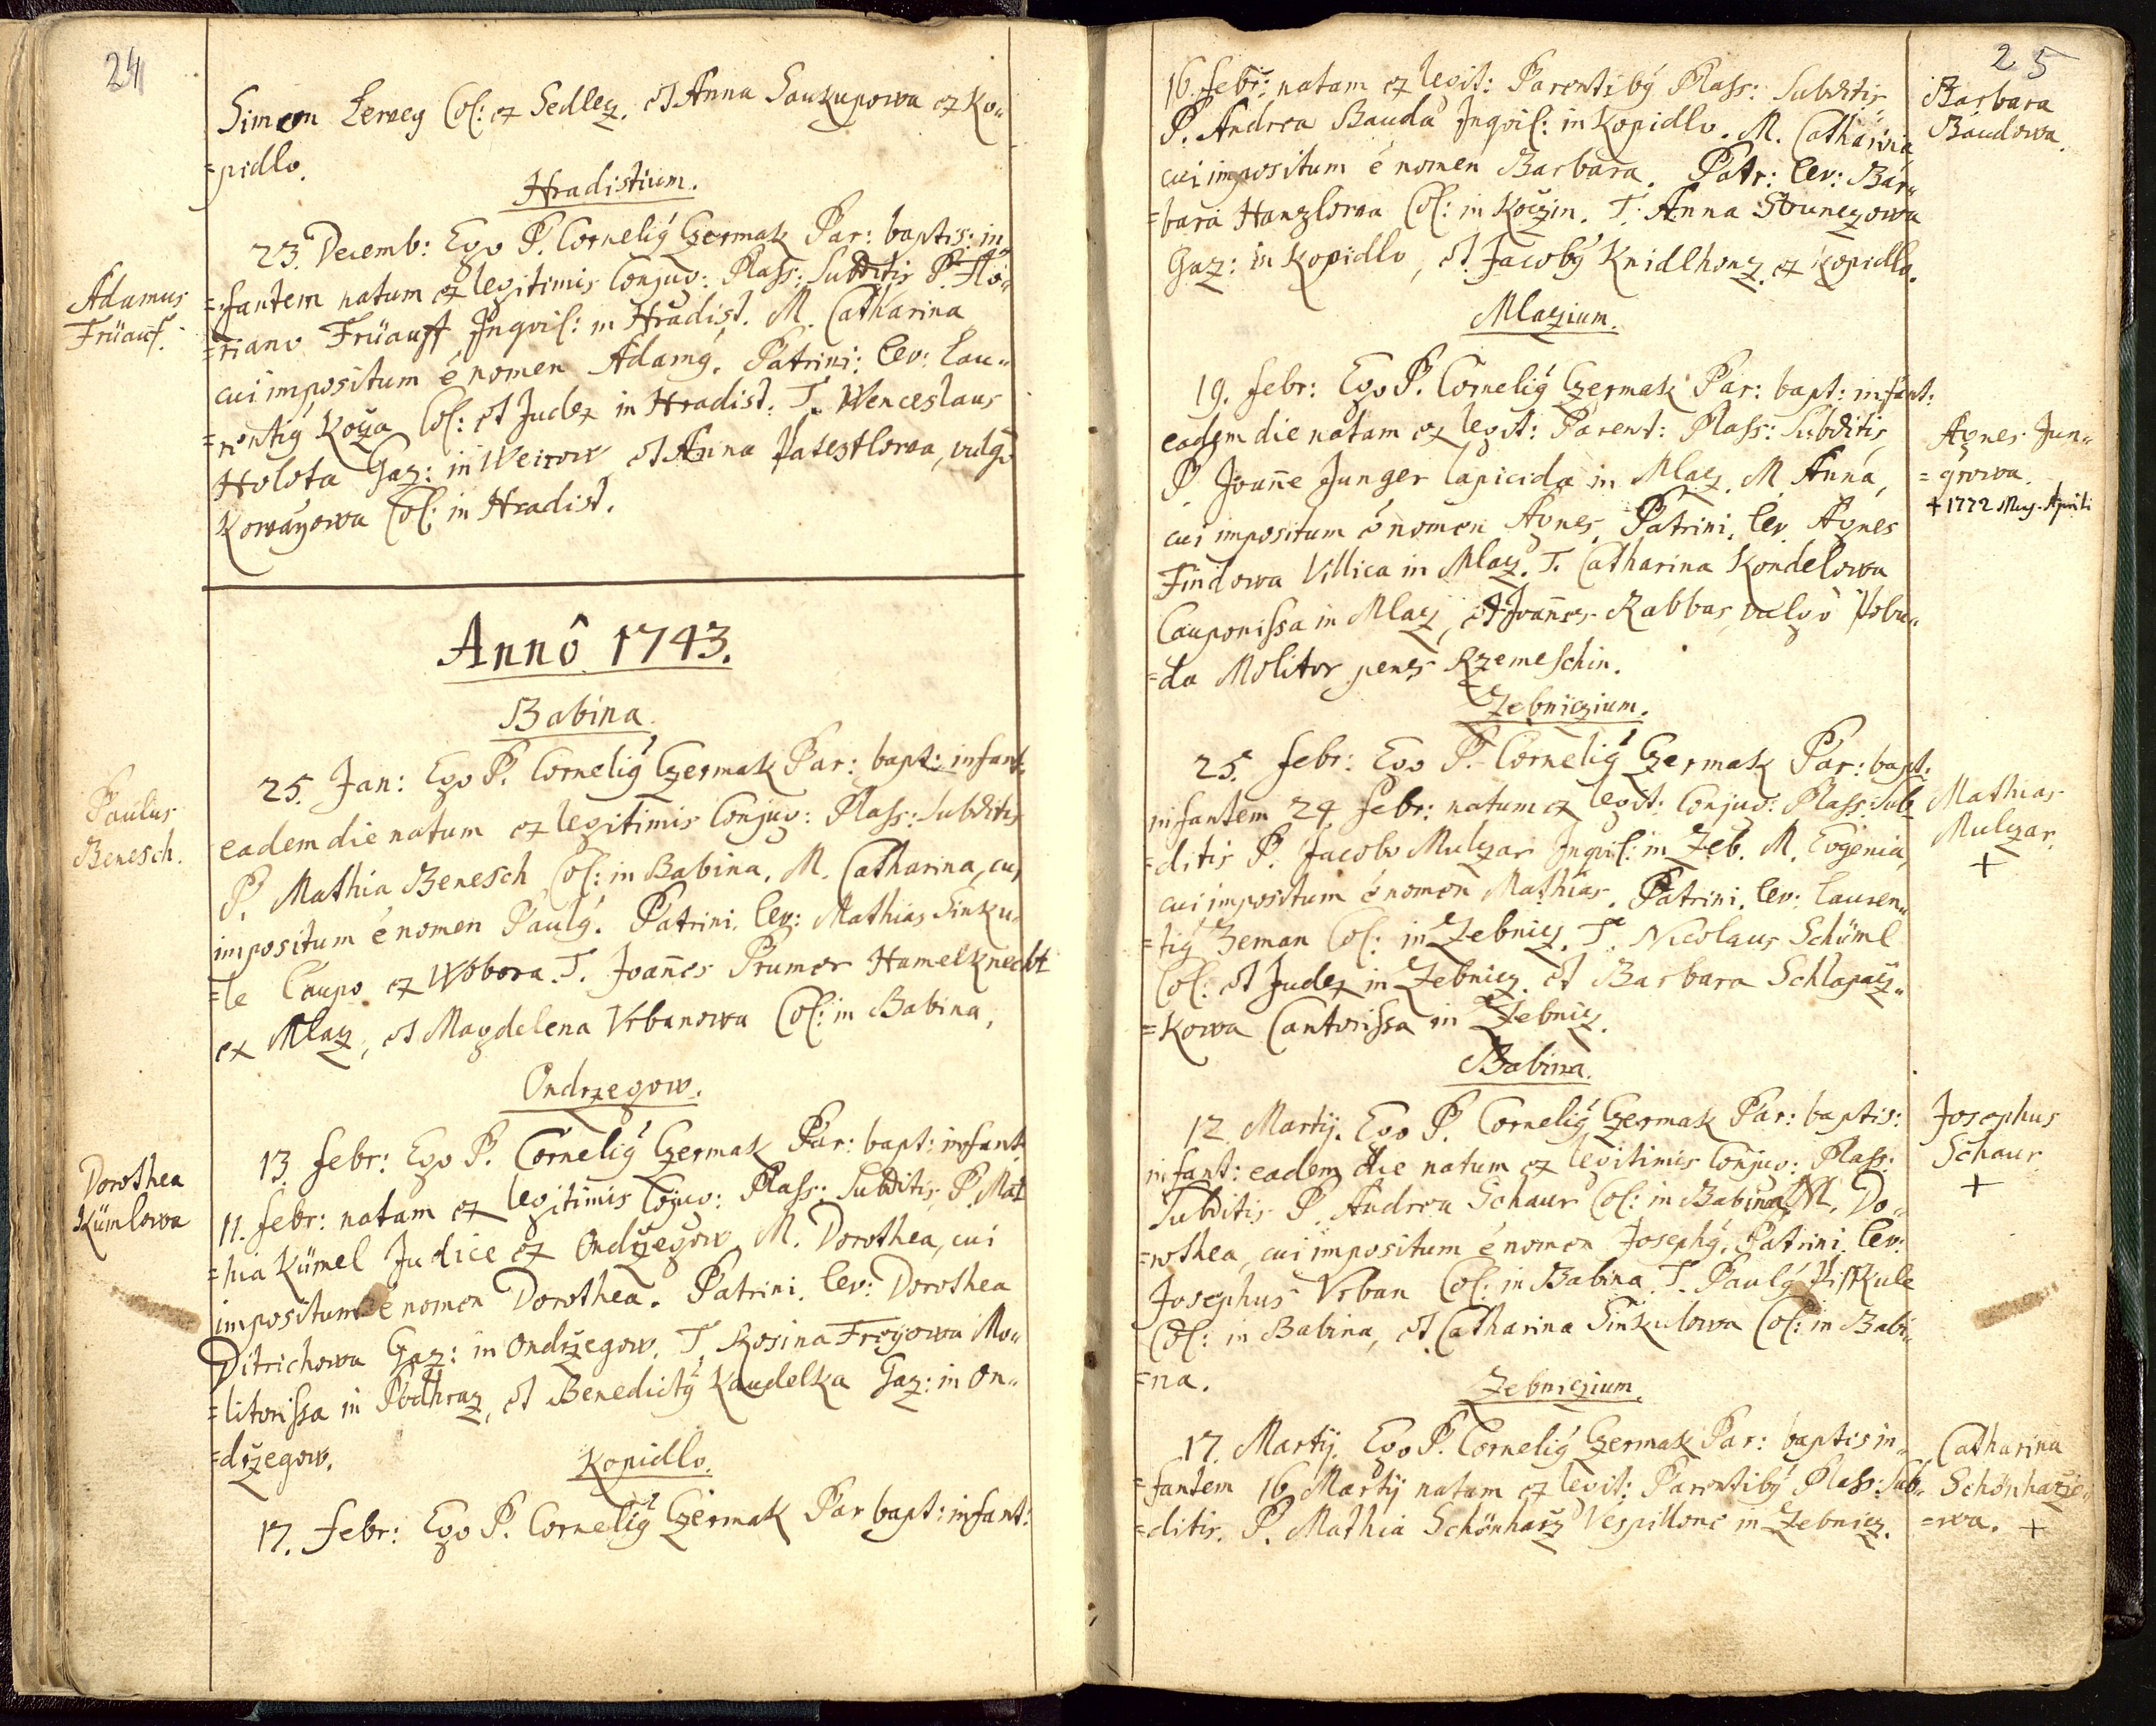 24
Simon Lerveg Col: ex Sedlez. et Anna Saukupowa ex Ko„
=pidlo.
Hradistium.
Adamus
Früauf.
23. Decemb: Ego P. Cornelig Czermak Par: baptis: in„
=fantem natum ex legitimis Conjug: Plass: Subditis P. Flo„
=riano Früauff Inquil: in Hradist. M. Catharina
cui impositum é nomen Adamg. Patrini: lev: Lau„
=rentig Koza Col: et Judex in Hradist. T. Wenceslaus
Holota Gaz: in Weirow et Anna Patestlowa, vulgo
Kowaÿowa Col: in Hradist.
Annô 1743.
Babina.
Paulus
Benesch.
25. Jan: Ego P. Cornelig Czermak Par: bapt: infant.
eadem die natum ex legitimis Conjug: Plass: Subditis
P. Mathia Benesch Col: in Babina. M. Catharina, cui
impositum é nomen Paulg. Patrini. lev: Mathias Sinku„
=le Caupo ex Wobora. T. Joañes Prumer Hamelknecht
ex Mlaz, et Magdelena Vrbanowa Col: in Babina,
Ondrzegow.
Dorothea
Kümlowa
13. febr: Ego P. Cornelig Czermak Par: bapt: infant
11. febr: natam ex legitimis Cojug: Plass: Subditis, P. Mat
=hia Kümel Judice ex Ondrzegow M. Dorothea, cui
impositum é nomen Dorothea. Patrini. lev: Dorothea
Ditrichowa Gaz: in Ondrzegow. T. Rosina Freÿowa Mo„
=litorissa in Podhraz, et Benedictg Kaudelka Gaz: in On„
=drzegow.
Kopidlo.
17. febr: Ego P. Cornelig Czermak Par bapt: infant:
25
Barbara
Baudowa.
16. febr: natam ex legit: Parentibg Plass: Subditis
P. Andrea Bauda Inqvil: in Kopidlo. M. Catharina
cui impositum é nomen Barbara. Patr: lev: Bar„
=bara Hanzlowa Col: in Koczin. T. Anna Strunezowa
Gaz: in Kopidlo, et Jacobg Knidlhonz ex Kopidlo.
Mlazium.
19. febr: Ego P. Cornelig Czermak Par: bapt: infant:
Agnes Jun„
=growa.
+ 1772 Aprili
eadem die natam ex legit: Parent: Plass: Subditis
P. Joañe Junger lapicida in Mlaz. M. Anna,
cui impositum é nomen Agnes. Patrini. lev. Agnes
Findowa Villica in Mlaz. T. Catharina Kondelowa
Cauponissa in Mlaz, et Joañes Rabbas, vulgò Pobu„
=da Molitor penes Rzemeschin.
Zebniczium.
25. febr: Ego P. Cornelig Czermak Par: bapt:
Mathias
Mulczar.
+
infantem 24. febr: natum ex legit: Conjug: Plass: Sub„
=ditis P. Jacobo Mulczar Inqvil: in Zeb. M. Evgenia,
cui impositum é nomen Mathias. Patrini. lev: Lauren„
=tig Zeman Col: in Zebnicz. T. Nicolaus Schüml
Col: et Judex in Zebnicz. et Barbara Schlapacz„
=kowa Cantorissa in Zebnicz.
Babina.
Josephus
Schaur
+
12. Martij. Ego P. Cornelig Czermak Par: baptis:
infant: eadem die natum ex legitimis Conjug: Plass:
Subditis P. Andrea Schaur Col: in Babina, M. Do„
=rothea, cui impositum é nomen Josephg. Patrini. lev:
Josephus Vrban Col: in Babina. T. Paulg Pisskule
Col: in Babina, et Catharina Sinkulowa Col: in Babi„
=na.
Zebniczium.
Catharina
Schönharze„
=wa. +
17. Martij. Ego P. Cornelig Czermak Par: baptis in„
=fantem 16 Martij natam ex legit: Parentibg Plass: Sub„
=ditis. P. Mathia Schönharz Vespillone in Zebnicz.